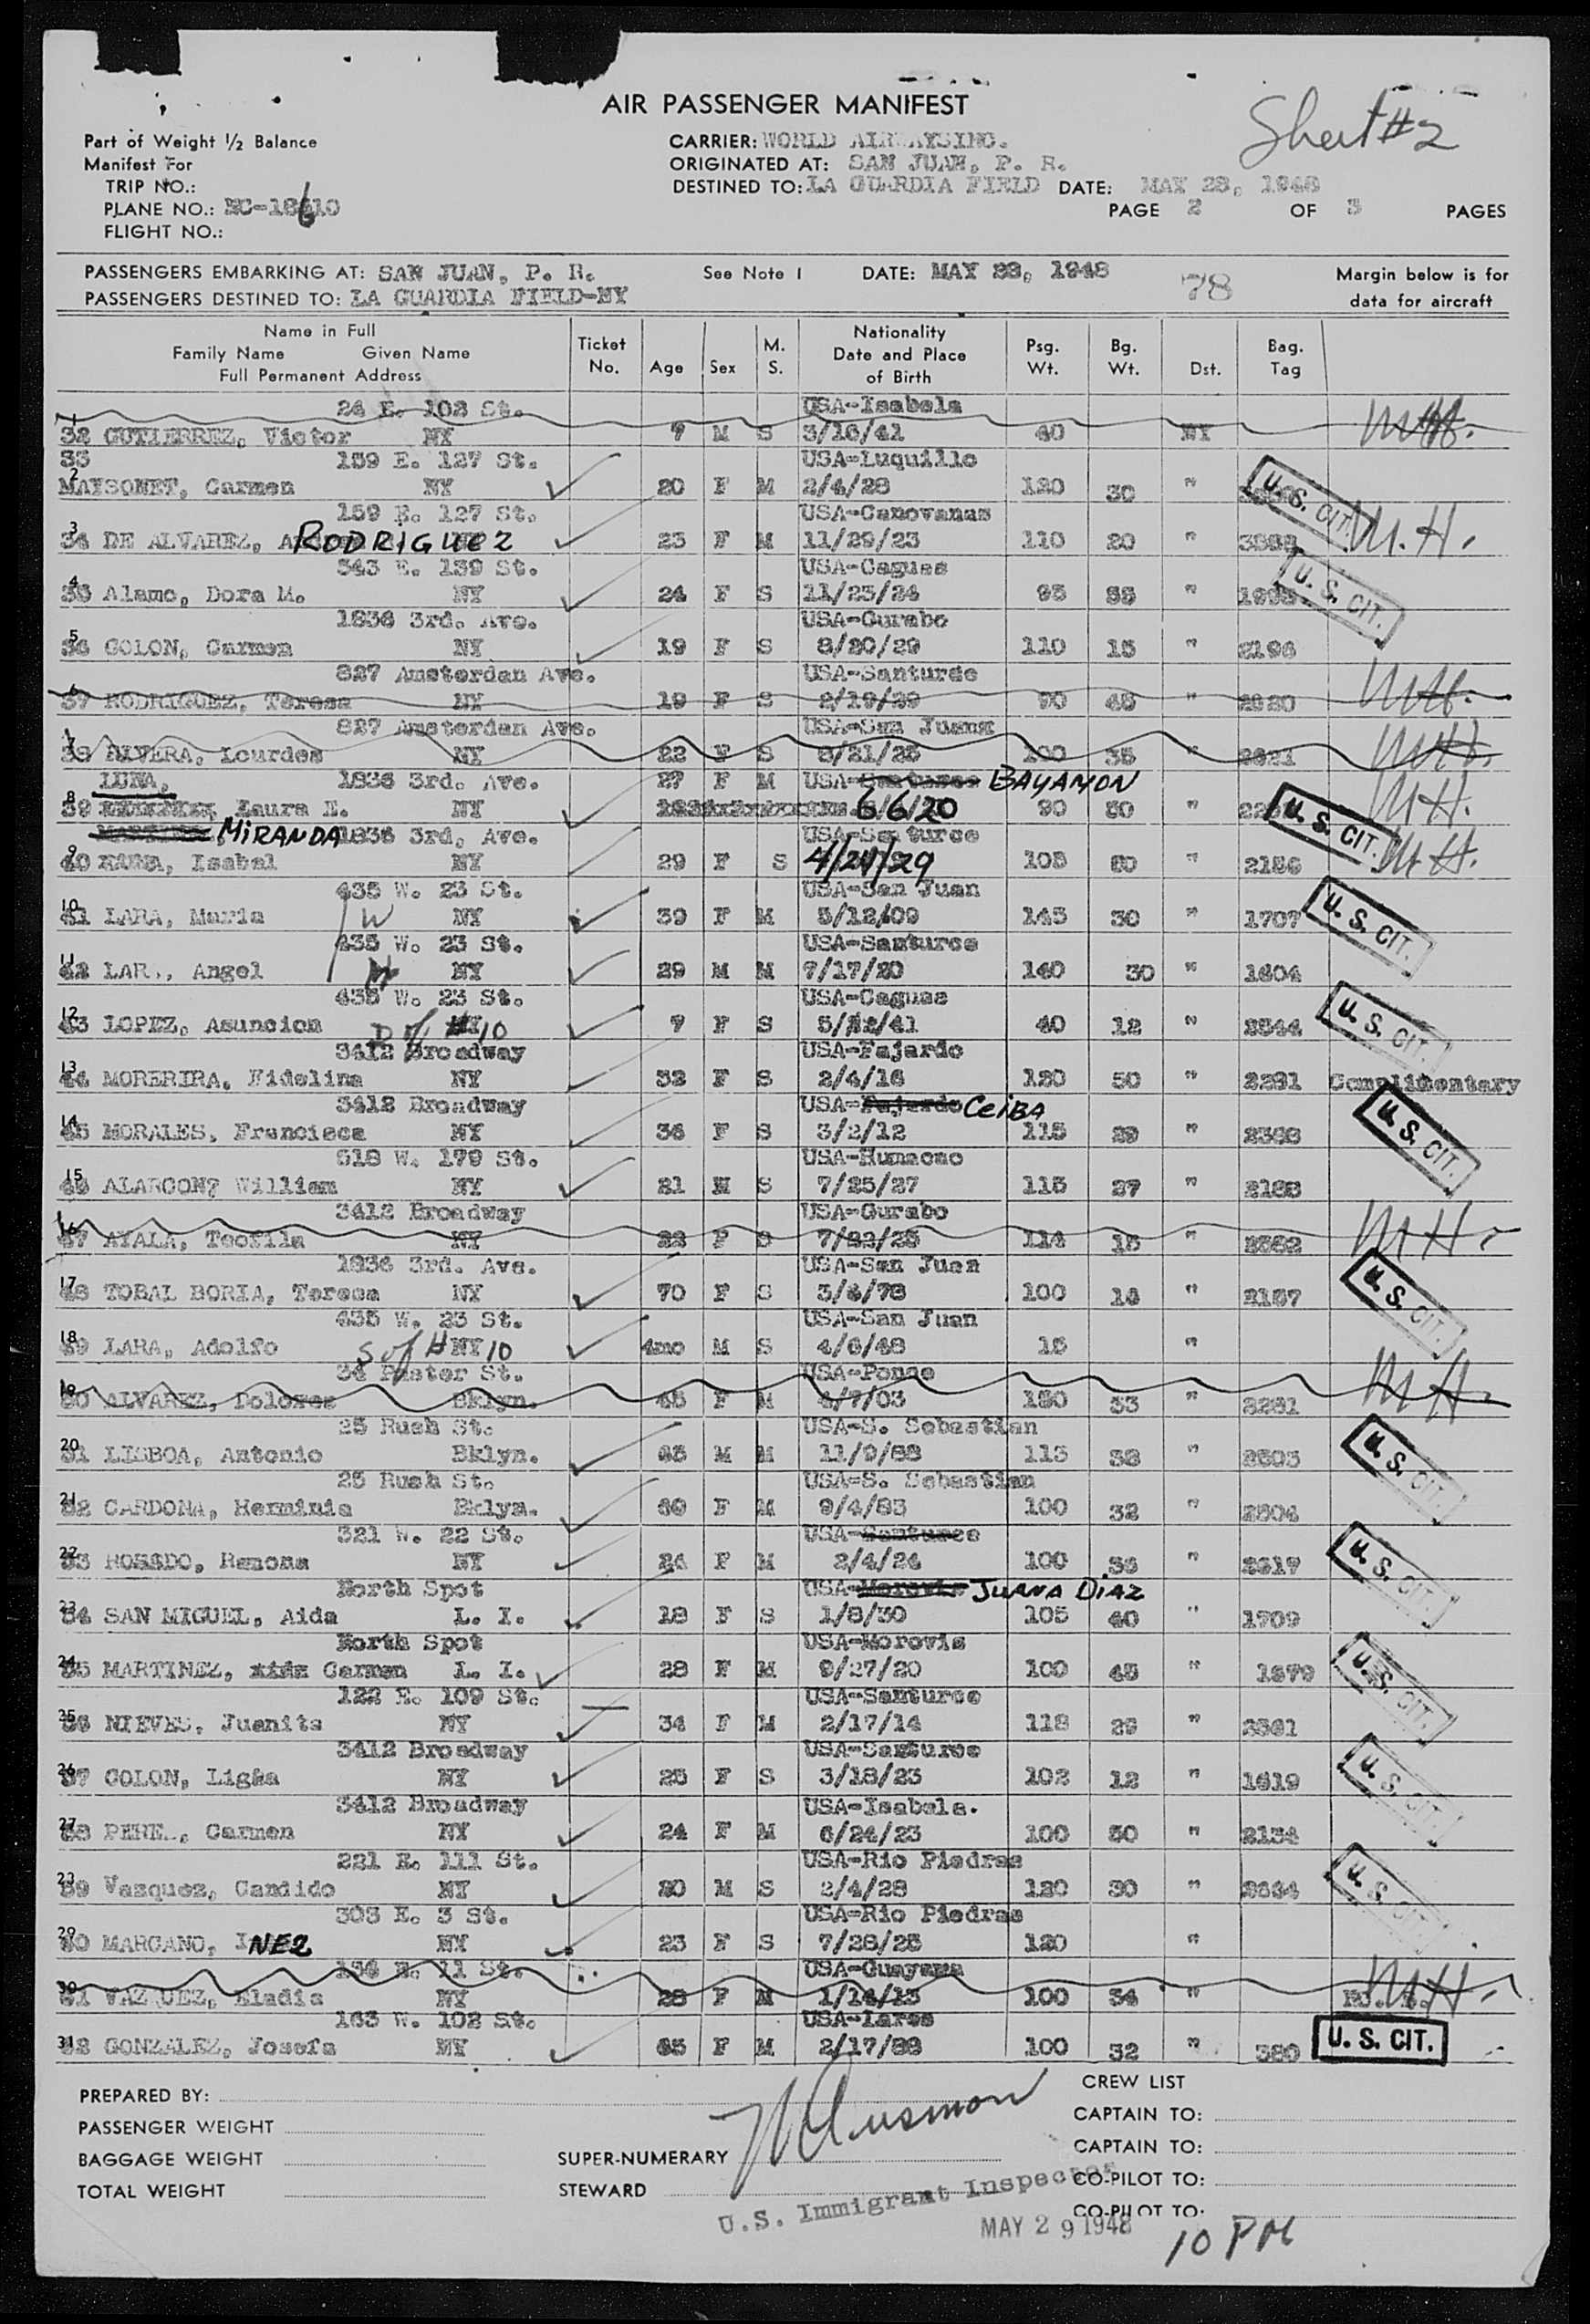 AIR PASSENGER MANIFEST
Sheet #2
Part of Weight ½ Balance
Manifest For
TRIP NO.:
PLANE NO.: NC-18610
FLIGHT NO.:
CARRIER: WORLD AIRWAYS INC.
ORIGINATED AT: SAN JUAN, P. R.
DESTINED TO: LA GUARDIA FIELD DATE: MAY 28, 1948
PAGE 2 OF 3 PAGES
PASSENGERS EMBARKING AT: SAN JUAN, P. R. See Note 1 DATE: MAY 28, 1948 78
PASSENGERS DESTINED TO: LA GUARDIA FIELD-NY
Margin below is for
data for aircraft
Name in Full
Family Name Given Name
Full Permanent Address
Ticket No.
Age
Sex
M. S.
Nationality
Date and Place
of Birth
Psg. Wt.
Bg. Wt.
Dst.
Bag. Tag
24 E. 102 St. USA-Isabela
1 32 GUTIERREZ, Victor NY 7 M S 3/16/41 40 NY MH.
33 159 E. 127 St. USA-Luquillo
2 MAYSONET, Carmen NY 20 F M 2/4/28 120 30 " U. S. CIT.
159 E. 127 St. USA-Canovanas
3 34 DE ALVAREZ, RODRIGUEZ 23 F M 11/29/23 110 20 " M.H.
543 E. 139 St. USA-Caguas
4 35 Alamo, Dora M. NY 24 F S 11/25/24 95 " U. S. CIT.
1836 3rd. Ave. USA-Gurabo
5 36 COLON, Carmen NY 19 F S 8/20/29 110 15 " 2196
827 Amsterdan Ave. USA-Santurde
6 37 RODRIGUEZ, Teresa NY 19 F S 2/19/29 90 45 " MH.
827 Amsterdan Ave. USA-San Juan
7 38 RIVERA, Lourdes NY 22 F S 100 35 " MH.
LUNA, 1836 3rd. Ave. 27 F M USA- BAYAMON
8 39 Laura E. NY 6/6/20 90 50 " MH.
MIRANDA 1836 3rd, Ave. USA-Santurce U. S. CIT.
9 40 Isabel NY 29 F S 4/24/29 105 60 " 2186 MH.
435 W. 23 St. USA-San Juan
10 41 LARA, Maria W NY 39 F M 5/12/09 145 30 " 1707 U. S. CIT.
435 W. 23 St. USA-Santurce
11 42 LAR , Angel H NY 29 M M 7/17/20 140 30 " 1604
435 W. 23 St. USA-Caguas
12 43 LOPEZ, Asuncion D of #10 7 F S 5/12/41 40 12 " 2544 U. S. CIT.
3412 Broadway USA-Fajardo
13 44 MORERIRA, Fidelina NY 32 F S 2/4/16 120 50 " 2291 Complimentary
3412 Broadway USA-Fajardo CEIBA
14 45 MORALES, Francisca NY 36 F S 3/2/12 115 29 " U. S. CIT.
518 W. 179 St. USA-Humacao
15 ALARCON? William NY 21 M S 7/25/27 115 27 "
3412 Broadway USA-Gurabo
16 47 AYALA, Teofila NY F S 114 15 " MH.
1836 3rd. Ave. USA-San Juan
17 48 TOBAL BORIA, Teresa NY 70 F S 3/4/78 100 14 " 2187 U. S. CIT.
435 W. 23 St. USA-San Juan
18 49 LARA, Adolfo S of #10 NY 4mo M S 4/6/48 15 "
34 Paster St. USA-Ponce
19 50 ALVAREZ, Dolores Bklyn. 45 F M 4/7/03 130 33 " 2281 MH
25 Rush St. USA-S. Sebastian
20 51 LISBOA, Antonio Bklyn. M M 11/9/88 115 38 " U. S. CIT.
25 Rush St. USA-S. Sebastian
21 52 CARDONA, Herminia Bklyn. F M 9/4/85 100 32 "
321 W. 22 St. USA-Santurce
22 53 ROSADO, Ramona NY 24 F M 2/4/24 100 " U. S. CIT.
North Spot USA-Morovis JUANA DIAZ
23 54 SAN MIGUEL, Aida L. I. 18 F S 1/8/30 105 40 " 1709
North Spot USA-Morovis
24 55 MARTINEZ, Carmen L. I. 28 F M 9/27/20 100 45 " U. S. CIT.
122 E. 109 St. USA-Santurce
25 56 NIEVES, Juanita NY 34 F M 2/17/14 118 "
3412 Broadway USA-Santurce
26 57 COLON, Ligia NY 25 F S 3/18/23 102 12 " 1619 U. S. CIT.
3412 Broadway USA-Isabela.
27 58 PERE , Carmen NY 24 F M 6/24/23 100 50 " 2134
221 E. 111 St. USA-Rio Piedras
28 59 Vazquez, Candido NY 20 M S 2/4/28 120 30 " U. S. CIT.
303 E. 3 St. USA-Rio Piedras
29 60 MARCANO, INEZ NY 23 F S 7/28/25 120 "
11 St. USA-Guayama
30 61 VAZQUEZ, Eladia NY F M 100 34 " MH.
163 W. 102 St. USA-Lares
31 62 GONZALEZ, Josefa NY 65 F M 2/17/83 100 32 " 380 U. S. CIT.
PREPARED BY:
PASSENGER WEIGHT
BAGGAGE WEIGHT
TOTAL WEIGHT
SUPER-NUMERARY
STEWARD
U.S. Immigrant Inspector
MAY 29 1948
CREW LIST
CAPTAIN TO:
CAPTAIN TO:
CO-PILOT TO:
CO-PILOT TO:
10 PM